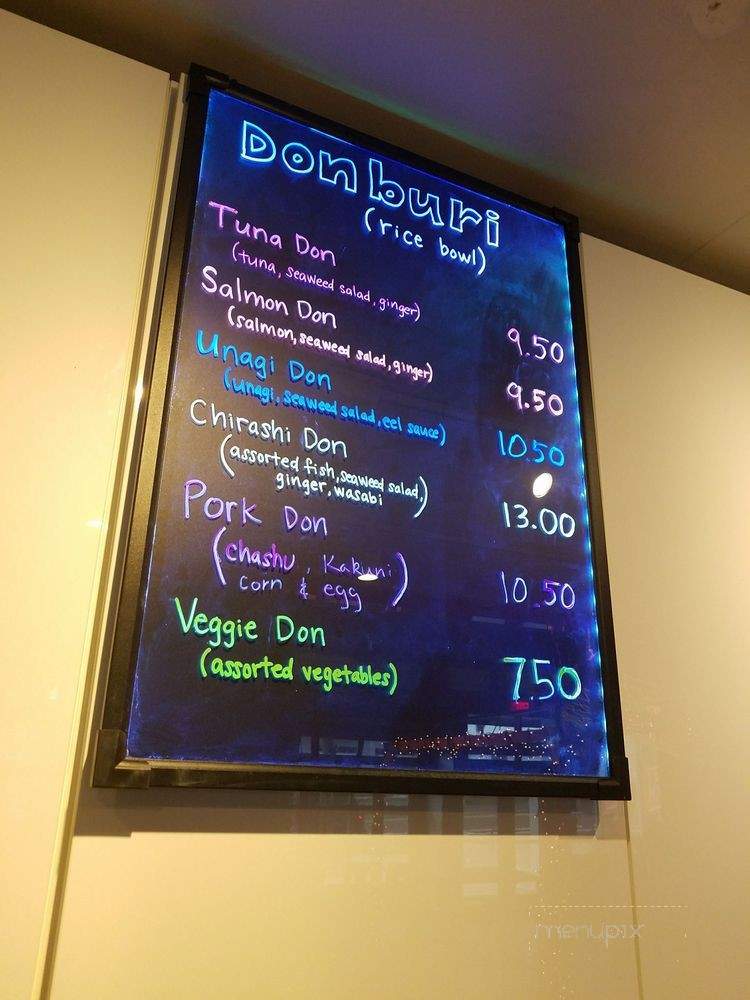 Donburi
(rice bowl)
Tuna Don
(tuna, seaweed salad, ginger) 9.50
Salmon Don
(salmon, seaweed salad, ginger) 9.50
Unagi Don
(unagi, seaweed salad, eel sauce) 10.50
Chirashi Don
(assorted fish, seaweed salad,
ginger, wasabi) 13.00
Pork Don
(chashu, Kakuni
corn & egg) 10.50
Veggie Don
(assorted vegetables) 7.50
menupix